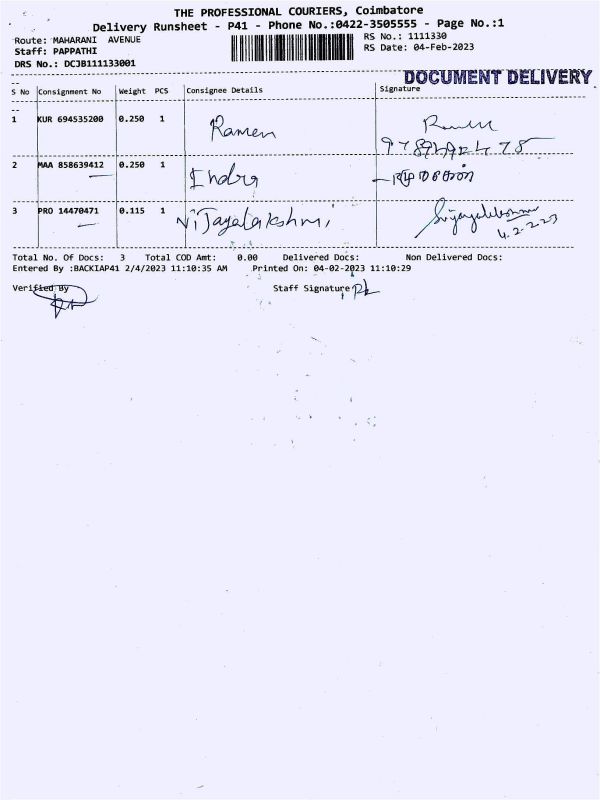 THE PROFESSIONAL COURIERS, Coimbatore
Delivery Runsheet - P41 - Phone No.:0422-3505555 - Page No.:1
Route: MAHARANI AVENUE
RS No.: 1111330
Staff: PAPPATHI
RS Date: 04-Feb-2023
DRS No.: DCJB111133001
DOCUMENT DELIVERY
S No Consignment No Weight PCS Consignee Details Signature
1 KUR 694535200 0.250 1 Ramen
2 MAA 858639412 0.250 1 Indra
3 PRO 14470471 0.115 1 Vijayalakshmi
4.2.223
Total No. Of Docs: 3 Total COD Amt: 0.00 Delivered Docs: Non Delivered Docs:
Entered By :BACKIAP41 2/4/2023 11:10:35 AM Printed On: 04-02-2023 11:10:29
Verified By Staff Signature